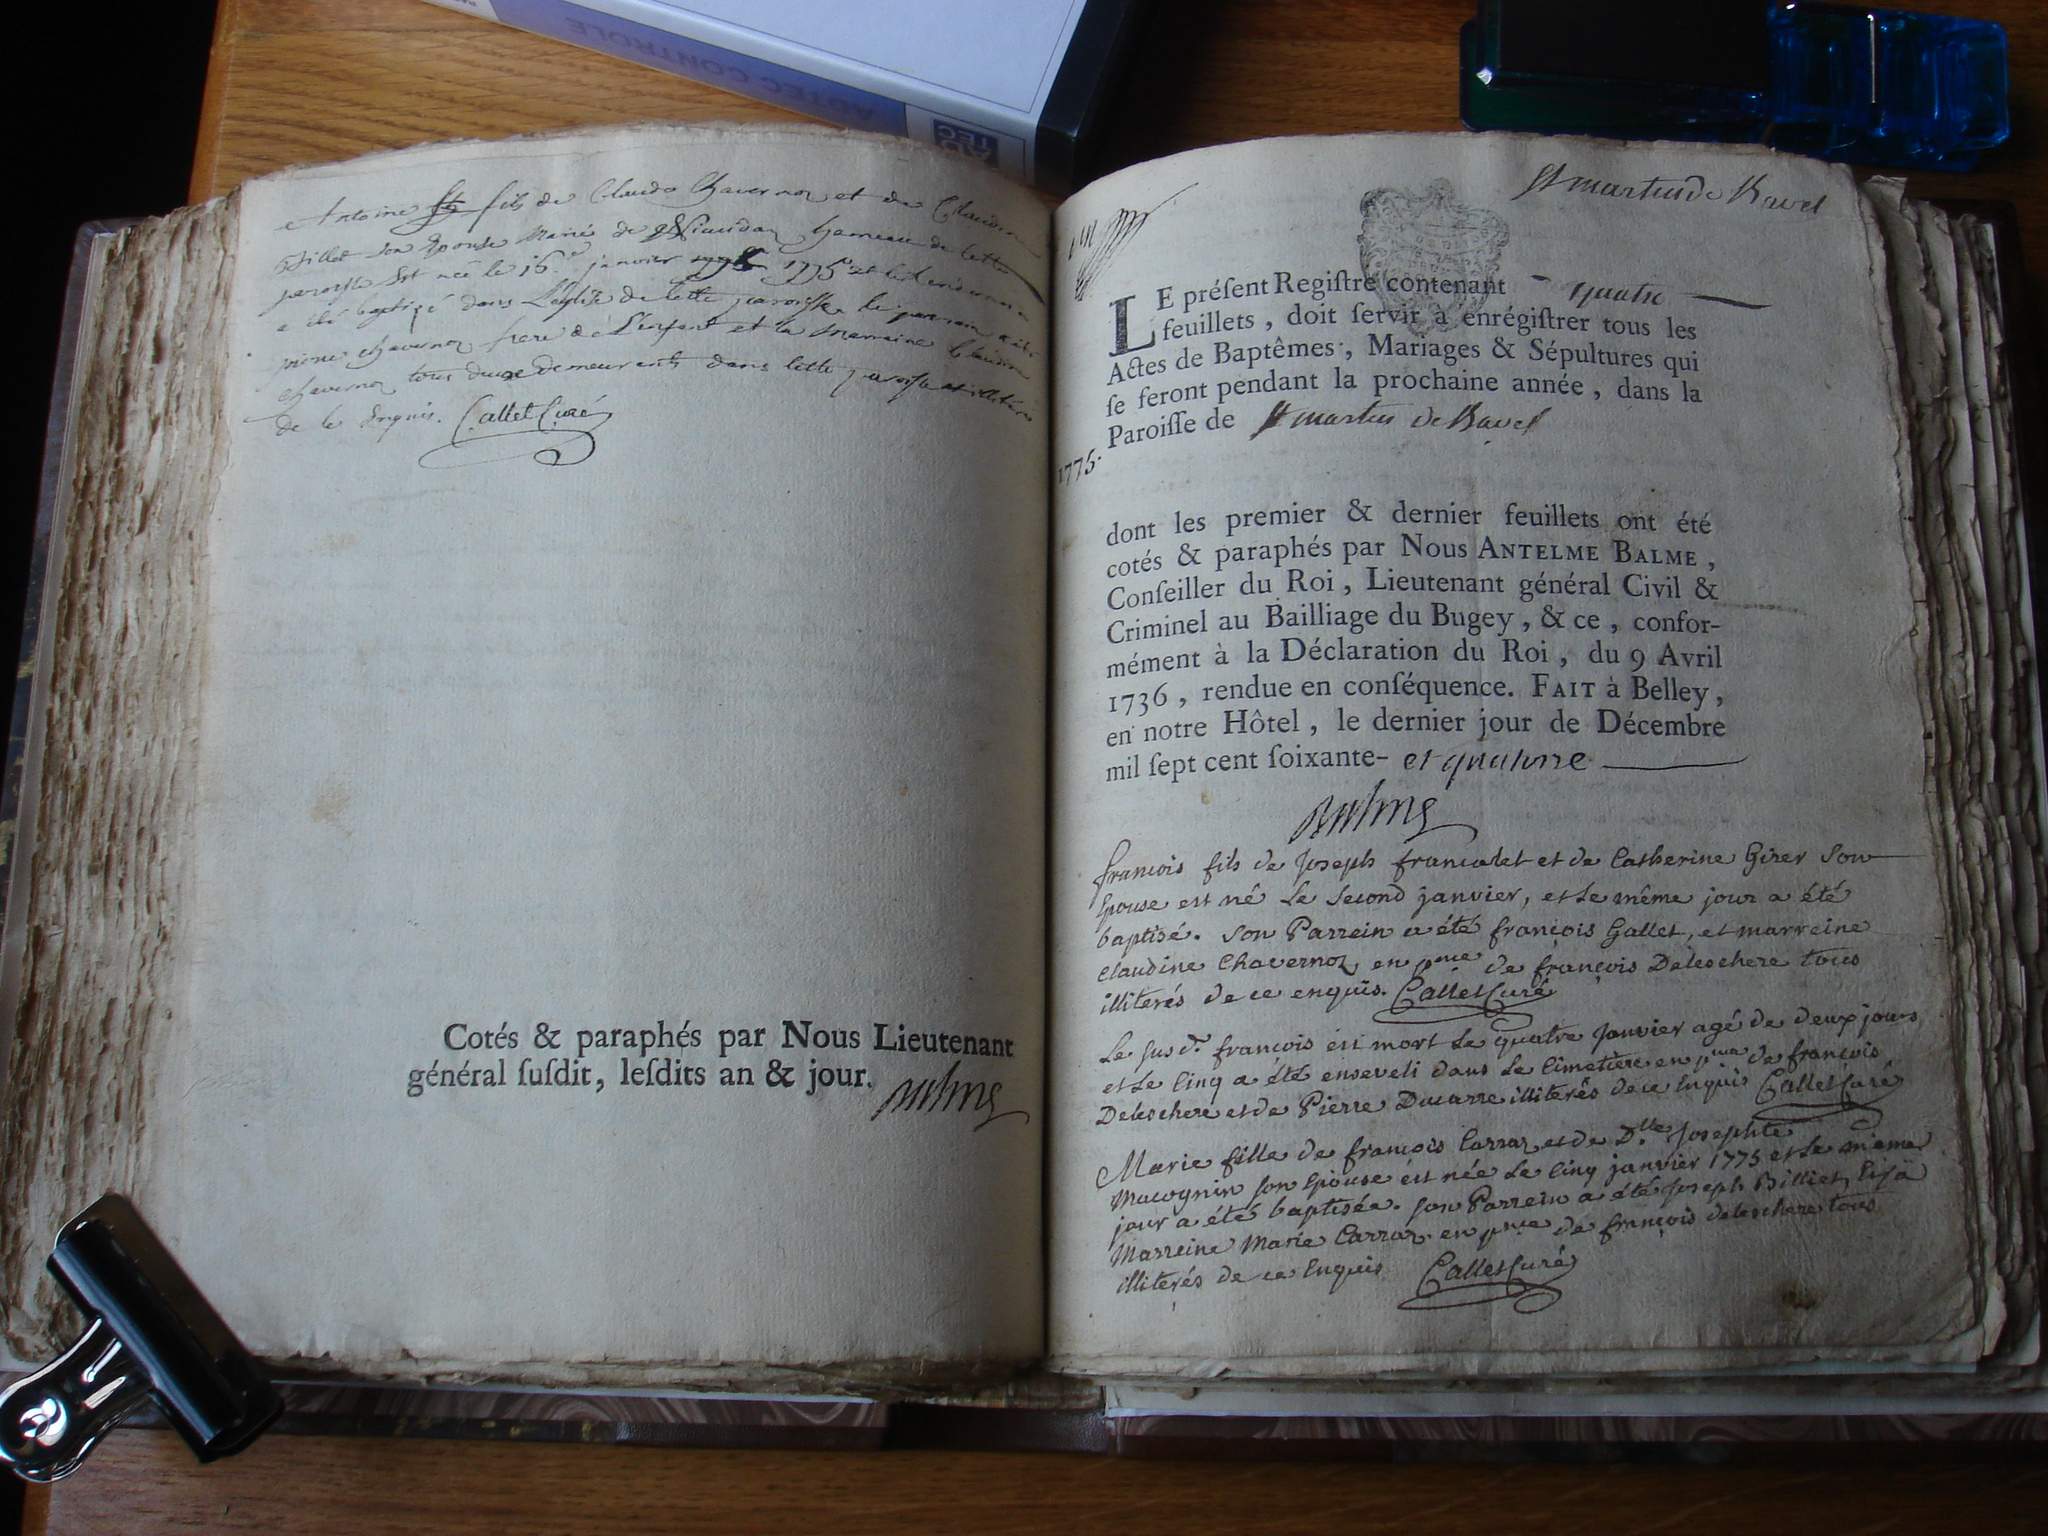 ADTEC CONTROLE
AD
TEC
Antoine fils de Claude Chavernoz et de Claudine
Billet son Epouse Mariés de hameau de cette
paroisse Est né le 16 janvier 1775 et le lendemain
a été baptizé dans L'église de cette paroisse le parrain a été
chavernoz frere de L'enfent et la Marraine Claudine
Chavernoz tous deux demeurants dans cette paroisse
de ce Enquis. Callet Curé
Cotés & paraphés par Nous Lieutenant
général ſuſdit, leſdits an & jour.
St martin de Bavel
LE préſent Regiſtre contenant quatre
feuillets, doit ſervir à enrégiſtrer tous les
Actes de Baptêmes, Mariages & Sépultures qui
ſe feront pendant la prochaine année, dans la
Paroiſſe de St martin de Bavel
1775.
dont les premier & dernier feuillets ont été
cotés & paraphés par Nous ANTELME BALME,
Conſeiller du Roi, Lieutenant général Civil &
Criminel au Bailliage du Bugey, & ce, confor-
mément à la Déclaration du Roi, du 9 Avril
1736, rendue en conſéquence. FAIT à Belley,
en notre Hôtel, le dernier jour de Décembre
mil ſept cent ſoixante- et quatorze
Balme
françois fils de Joseph francalet et de Catherine Girer Son
Epouse est né Le Second janvier, et Le même jour a été
baptisé. Son Parrein a été françois Gallet, et marreine
Claudine Chavernoz, en pnce de françois Deleschere tous
illiterés de ce enquis. Callet Curé
Le susd. francois est mort Le quatre Janvier agé de deux jours
et Le Cinq a été enseveli dans Le Cimetiere en pnce de françois
Deleschere et de Pierre Ducarre illiterés de ce Enquis Callet Curé
Marie fille de françois Carraz et de Dlle Josephte
Macognin son Epouse est née Le Cinq janvier 1775 et Le même
jour a été baptisée. Son Parrein a été Joseph Billiet, Et sa
Marreine Marie Carraz. en pnce de françois deleschere tous
illiterés de ce Enquis Callet Curé